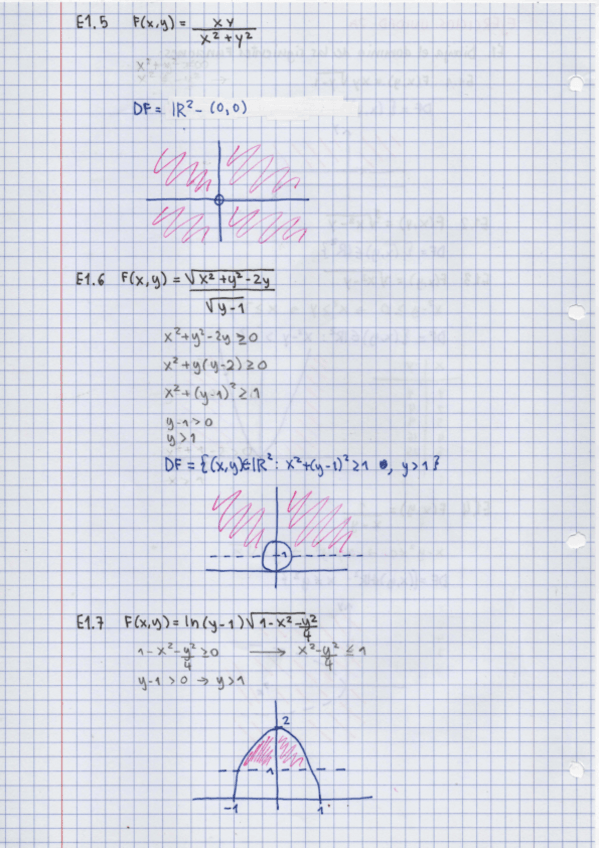 E1.5 F(x,y) = xy / x²+y²
DF = ℝ² - (0,0)
E1.6 F(x,y) = √x²+y²-2y / √y-1
x²+y²-2y ≥ 0
x²+y(y-2) ≥ 0
x²+(y-1)² ≥ 1
y-1 > 0
y > 1
DF = {(x,y)∈ℝ² : x²+(y-1)² ≥ 1 , y > 1}
1
E1.7 F(x,y) = ln(y-1) √1-x²-y²/4
1-x²-y²/4 ≥ 0 → x²-y²/4 ≤ 1
y-1 > 0 → y > 1
2
1
-1 1